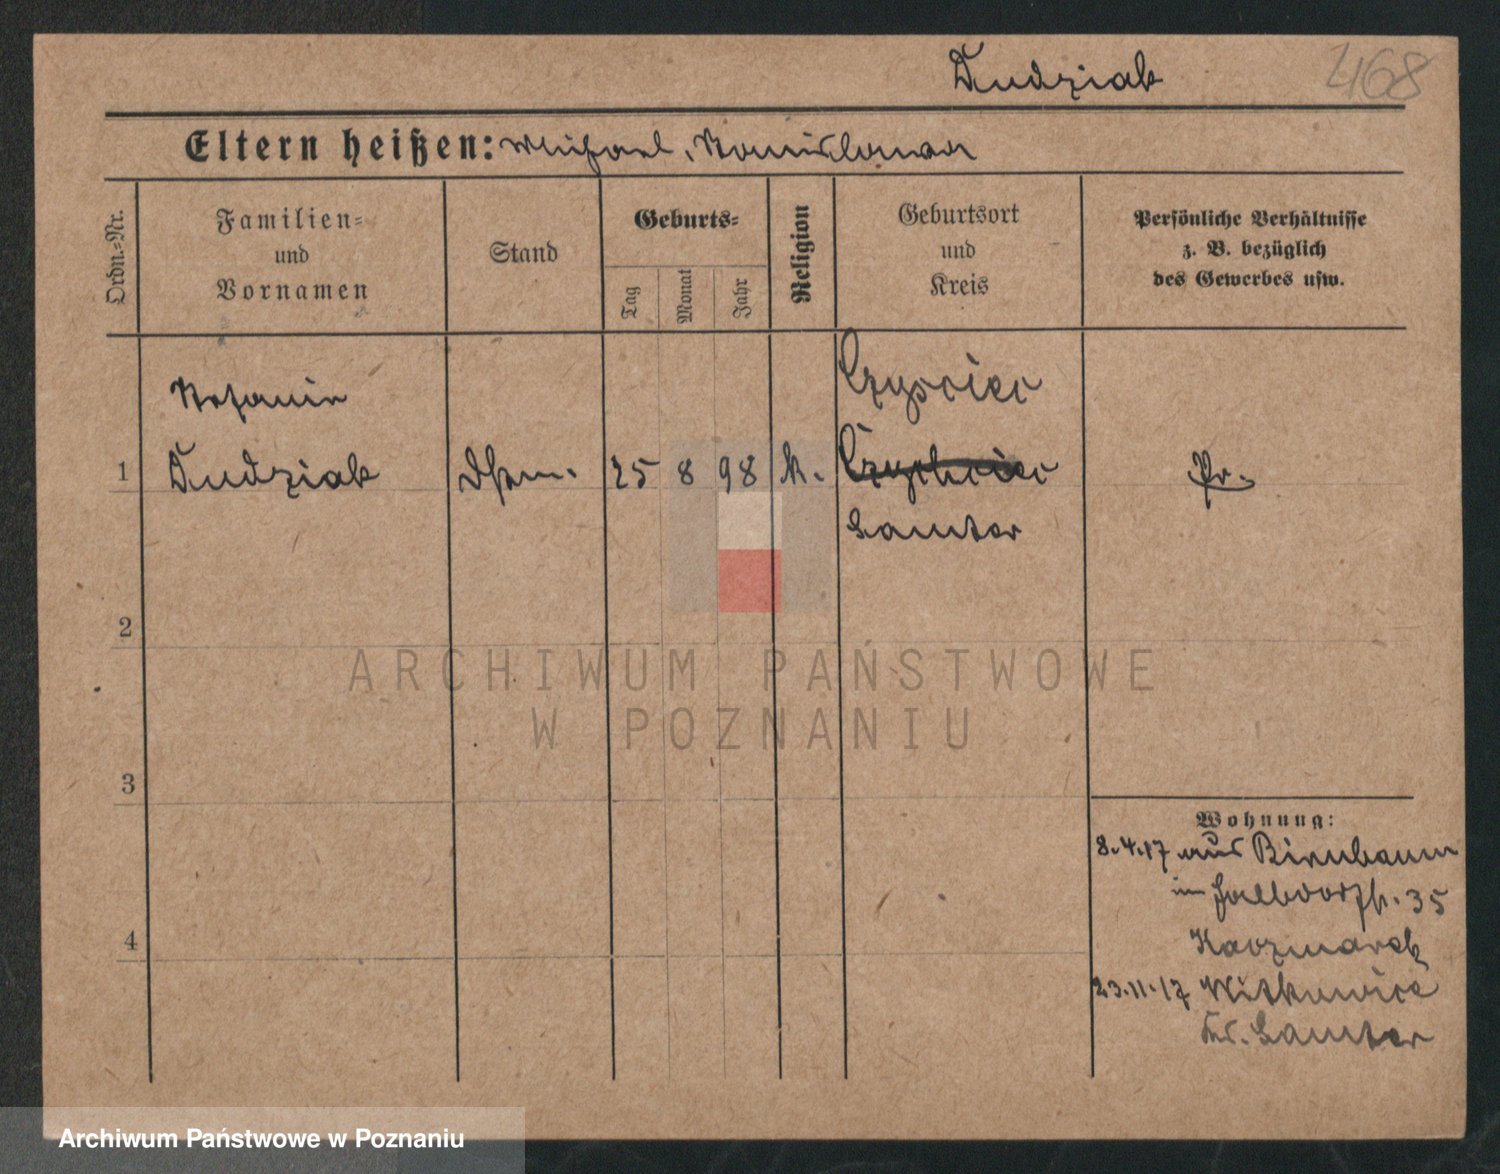 Dudziak
468
Eltern heißen: Michael, Stanislawa
Ordn.-Nr.
Familien-
und
Vornamen
Stand
Geburts-
Tag
Monat
Jahr
Religion
Geburtsort
und
Kreis
Persönliche Verhältnisse
z. B. bezüglich
des Gewerbes usw.
Stefanie
Czysciec
1 Dudziak 25 8 98 k. Pr.
Samter
2
ARCHIWUM PAŃSTWOWE
W POZNANIU
3
Wohnung:
8.4.17 aus Birnbaum
35
4
Kaczmarek
23.11.17 Witkowice
Kr. Samter
Archiwum Państwowe w Poznaniu